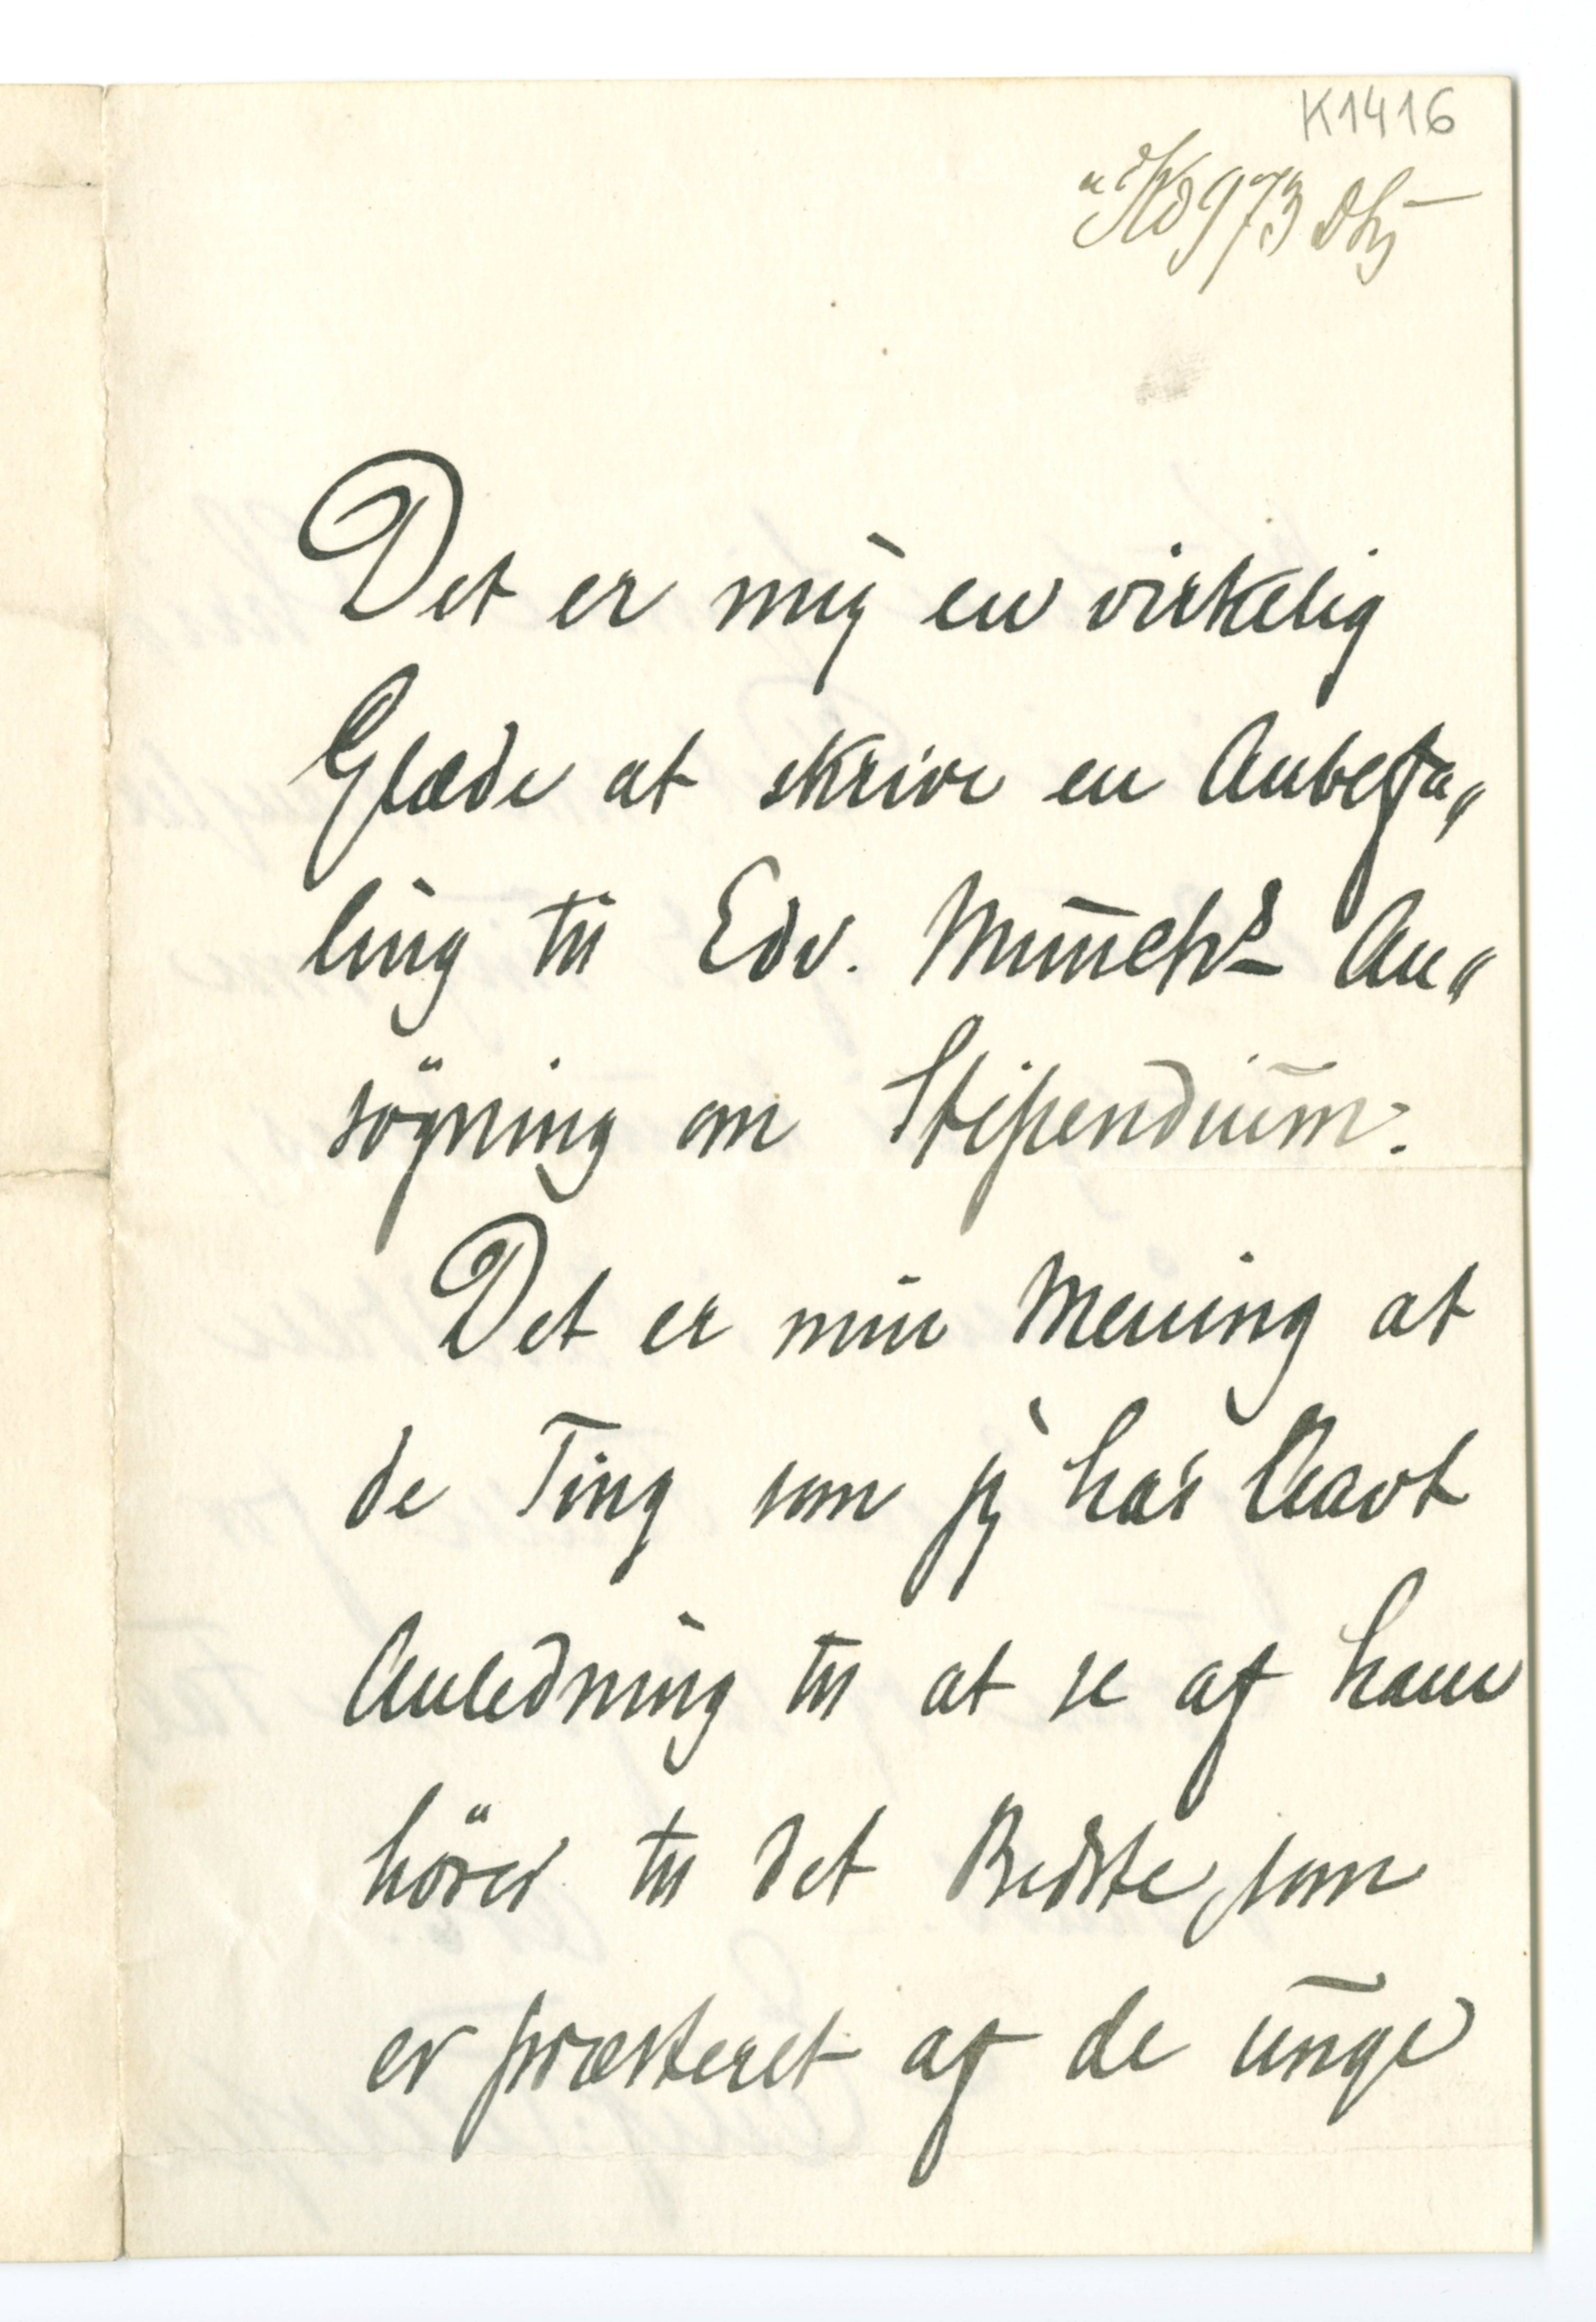 K1416
973
Det er mig en virkelig
Glæde at skrive en Anbefa„
ling til Edv. Munchs An„
søgning om Stipendium.
Det er min Mening at
de Ting som jeg har havt
Anledning til at se af ham
hører til det Bedste, som
er præsteret af de unge